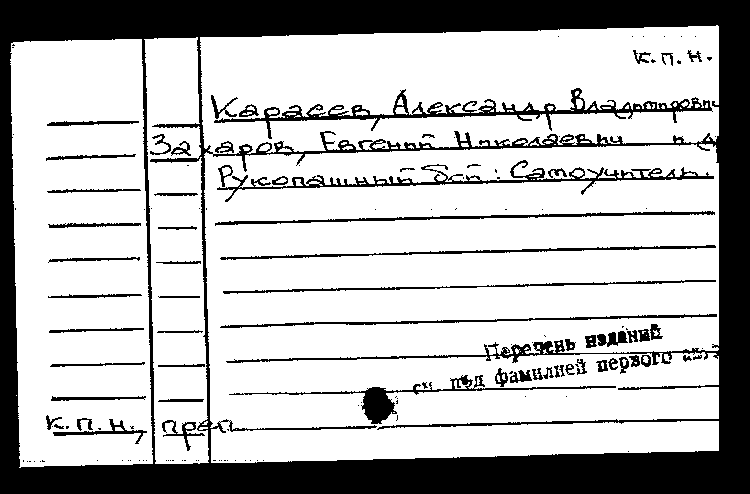 К.П.Н.
Карасев, Александр Владимирович
Захаров, Евгений Николаевич и др
Рукопашный бой: Самоучитель.
Перечень изданий
см. под фамилией первого
К.П.Н., преп.